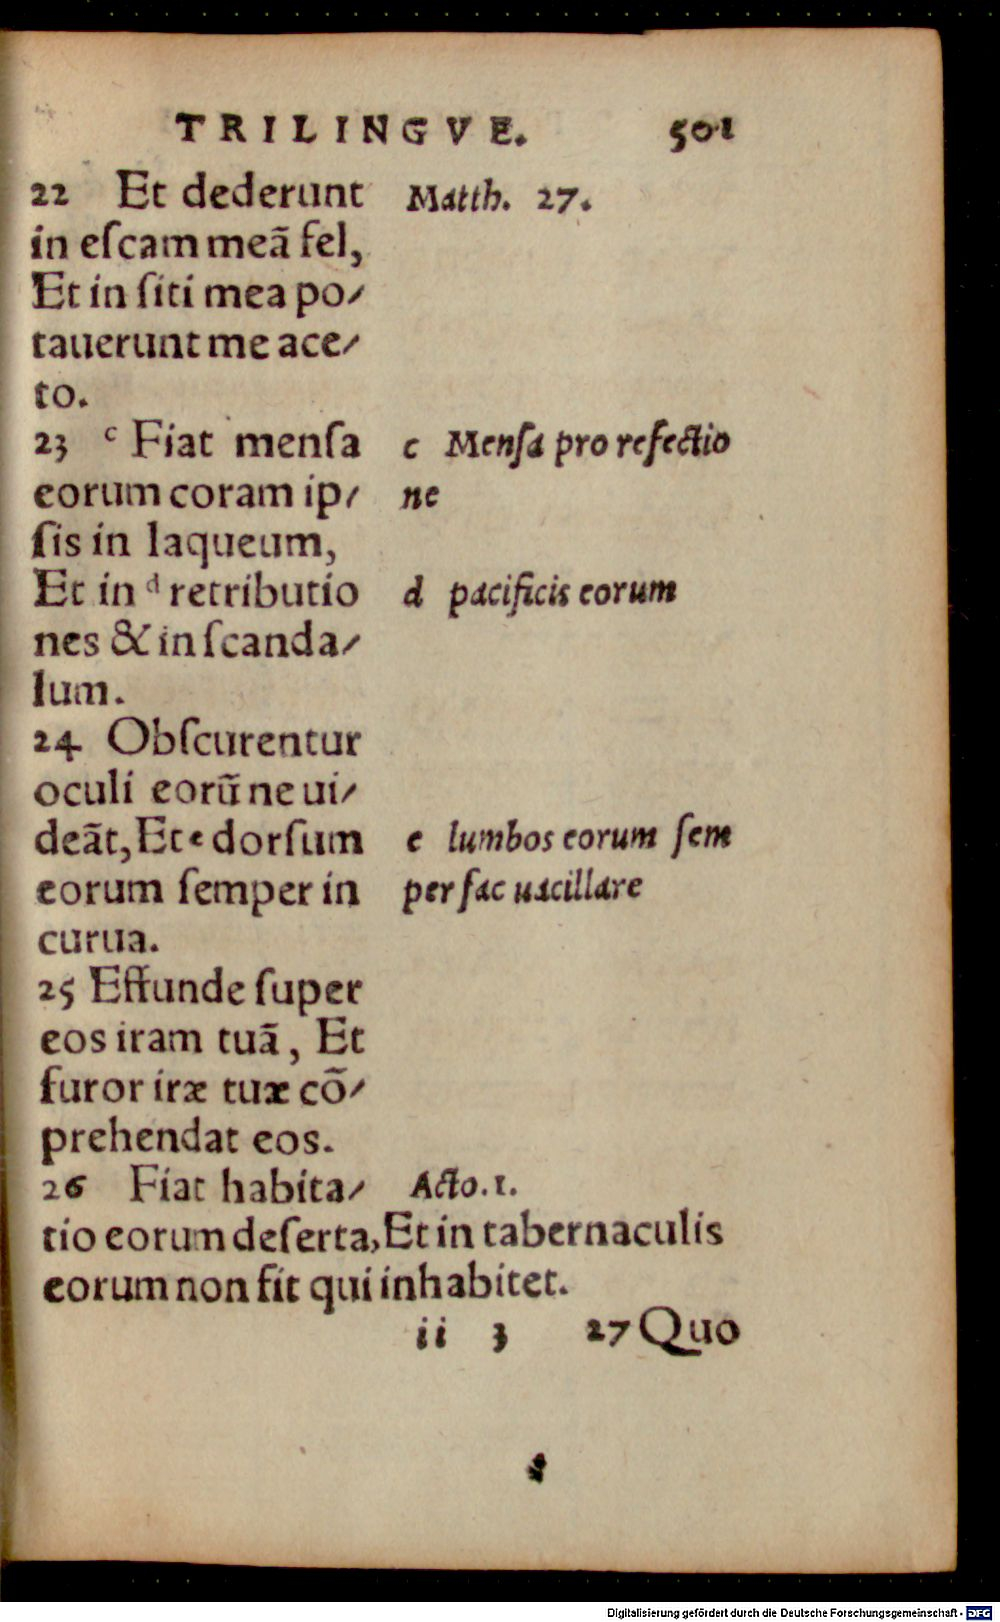 TRILINGVE. 501
22 Et dederunt Matth. 27.
in eſcam meã fel,
Et in ſiti mea po⸗
tauerunt me ace⸗
to.
23 c Fiat menſa c Menſa pro refectio
eorum coram ip⸗ ne
ſis in laqueum,
Et in d retributio d pacificis eorum
nes & in ſcanda⸗
lum.
24 Obſcurentur
oculi eorũ ne ui⸗
deãt, Et e dorſum e lumbos eorum ſem
eorum ſemper in per fac uacillare
curua.
25 Effunde ſuper
eos iram tuã, Et
furor iræ tuæ cõ⸗
prehendat eos.
26 Fiat habita⸗ Acto. 1.
tio eorum deſerta, Et in tabernaculis
eorum non ſit qui inhabitet.
ii 3 27 Quo
Digitalisierung gefördert durch die Deutsche Forschungsgemeinschaft - DFG